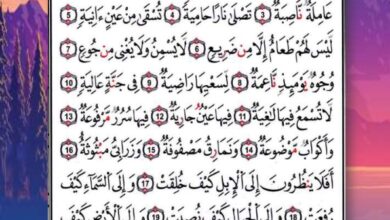 عَامِلَةٌ نَّاصِبَةٌ 3 تَصْلَىٰ نَارًا حَامِيَةً 4 تُسْقَىٰ مِنْ عَيْنٍ ءَانِيَةٍ 5
لَّيْسَ لَهُمْ طَعَامٌ إِلَّا مِن ضَرِيعٍ 6 لَّا يُسْمِنُ وَلَا يُغْنِى مِن جُوعٍ 7
وُجُوهٌ يَوْمَئِذٍ نَّاعِمَةٌ 8 لِّسَعْيِهَا رَاضِيَةٌ 9 فِى جَنَّةٍ عَالِيَةٍ 10
لَّا تَسْمَعُ فِيهَا لَٰغِيَةً 11 فِيهَا عَيْنٌ جَارِيَةٌ 12 فِيهَا سُرُرٌ مَّرْفُوعَةٌ 13
وَأَكْوَابٌ مَّوْضُوعَةٌ 14 وَنَمَارِقُ مَصْفُوفَةٌ 15 وَزَرَابِىُّ مَبْثُوثَةٌ 16
أَفَلَا يَنظُرُونَ إِلَى الْإِبِلِ كَيْفَ خُلِقَتْ 17 وَإِلَى السَّمَآءِ كَيْفَ
رُفِعَتْ 18 وَإِلَى الْجِبَالِ كَيْفَ نُصِبَتْ 19 وَإِلَى الْأَرْضِ كَيْفَ